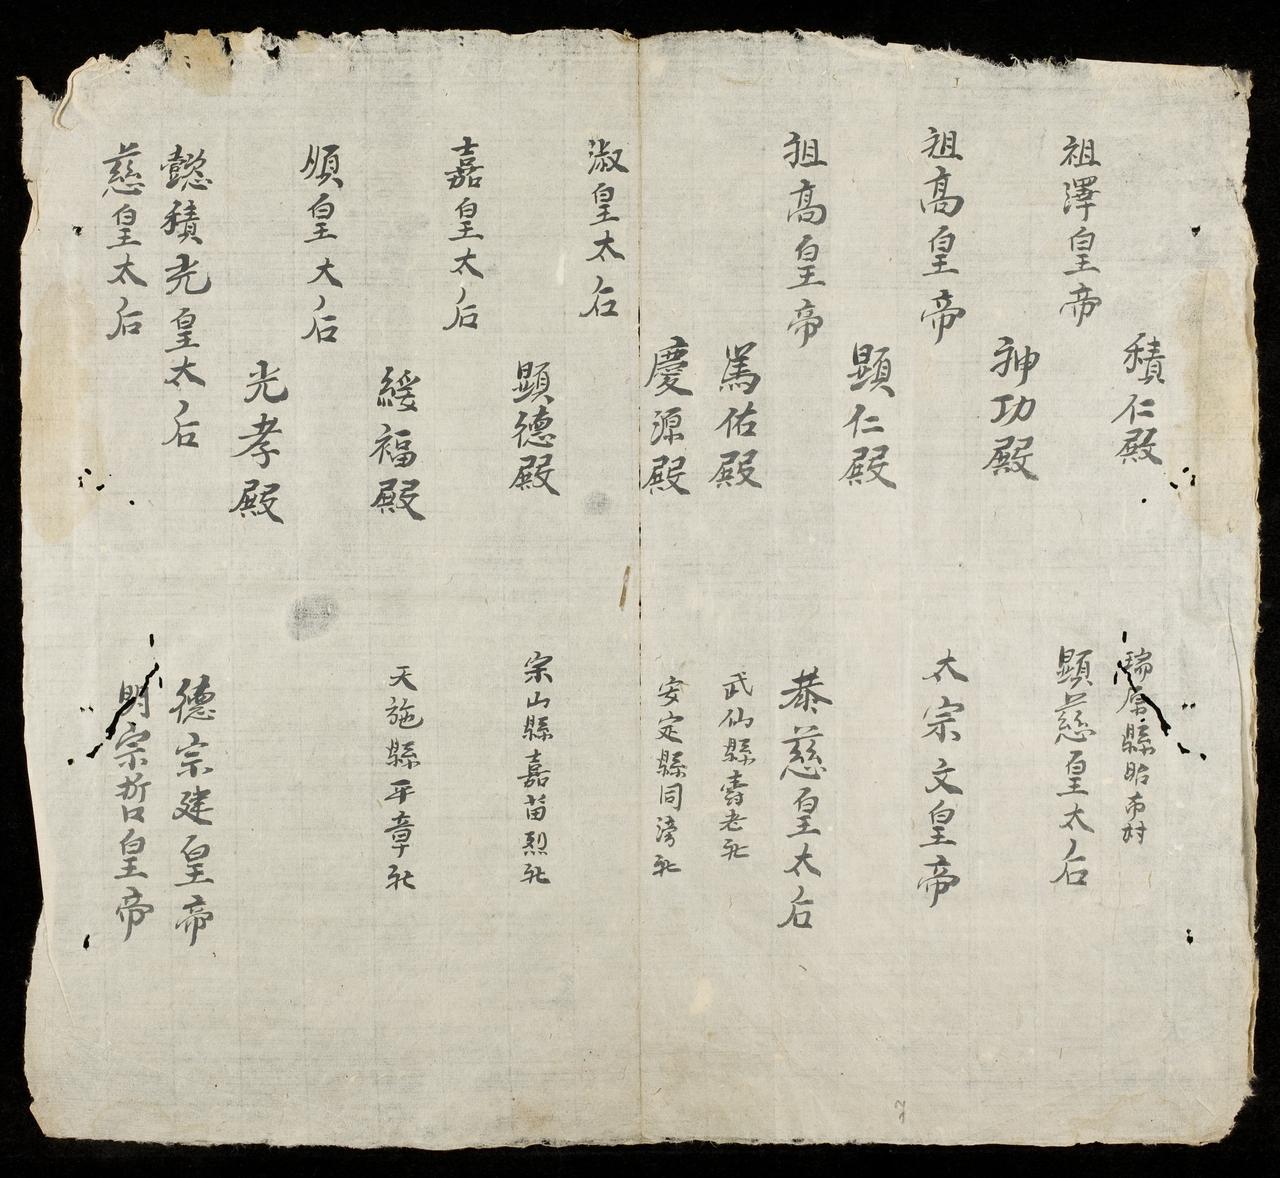 積仁殿
瑞原縣眙布村
祖澤皇帝
顯慈皇太后
神功殿
祖高皇帝
太宗文皇帝
顯仁殿
祖高皇帝
恭慈皇太后
篤佑殿
武仙縣壽老社
慶源殿
安定縣同滂社
淑皇太后
顯德殿
宋山縣嘉苗烈社
嘉皇太后
綏福殿
天施縣平章社
順皇太后
光孝殿
懿積光皇太后
德宗建皇帝
慈皇太后
明宗哲皇帝